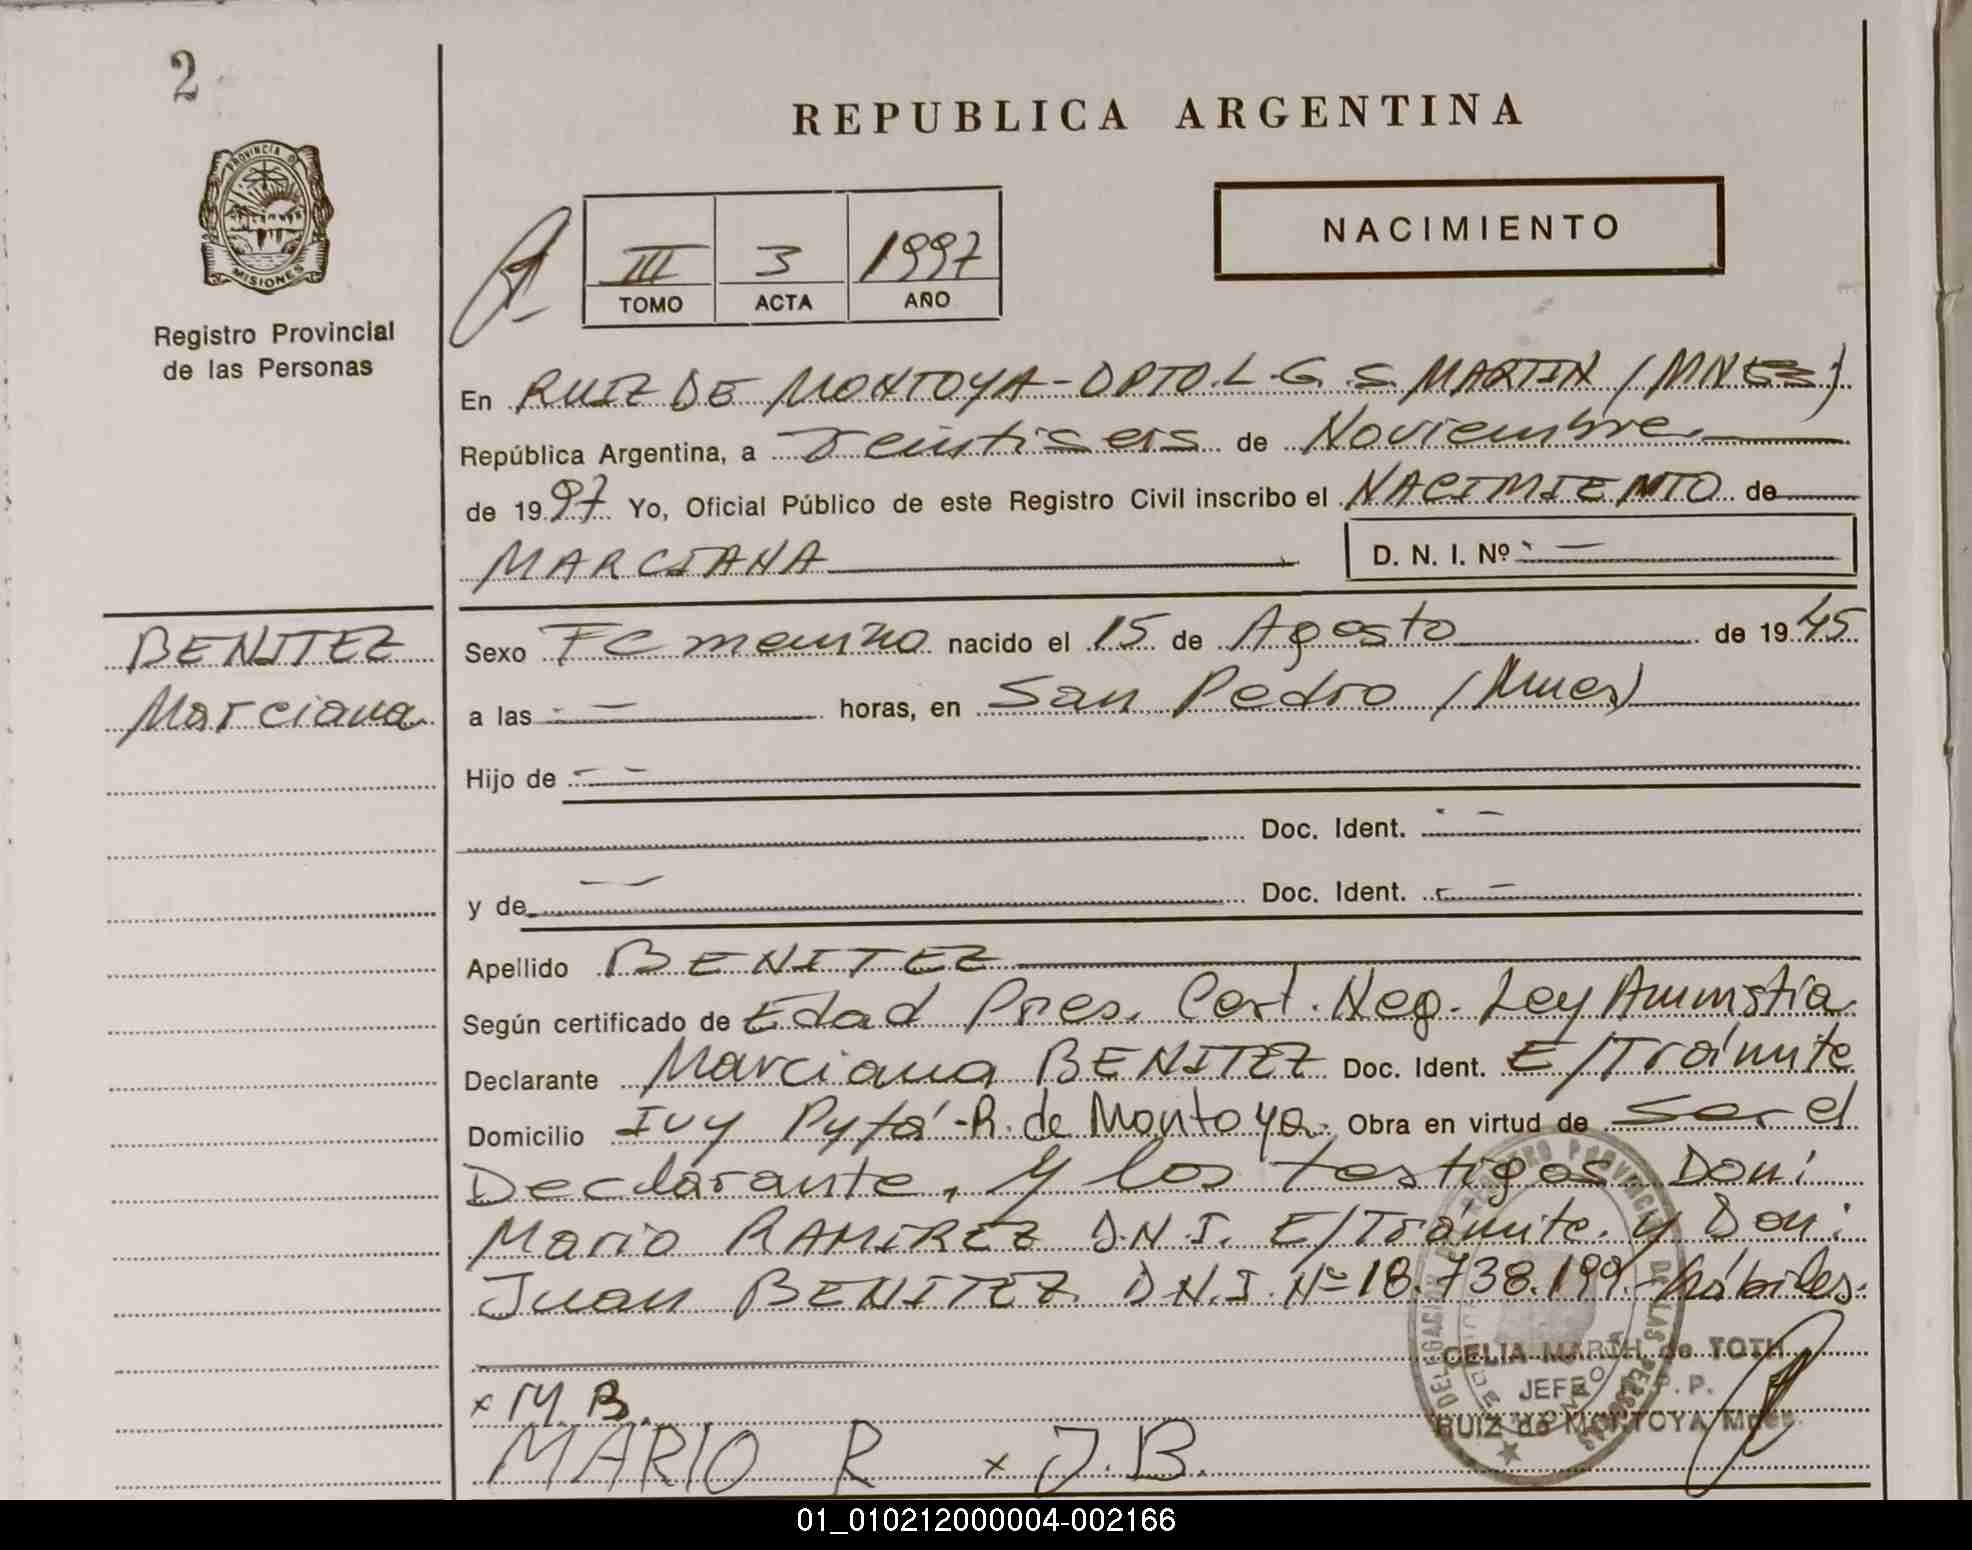 2
REPUBLICA ARGENTINA
PROVINCIA DE
MISIONES
Registro Provincial
de las Personas
III 3 1997
TOMO ACTA AÑO
NACIMIENTO
En RUIZ DE MONTOYA - DPTO. L. G. S. MARTIN / MNES)
República Argentina, a Veintiseis de Noviembre
de 1997 Yo, Oficial Público de este Registro Civil inscribo el NACIMIENTO de
MARCIANA D. N. I. Nº -
BENITEZ
Marciana
Sexo Femenino nacido el 15 de Agosto de 1945
a las - horas, en San Pedro / Mnes)
Hijo de - -
Doc. Ident. -
y de - Doc. Ident. -
Apellido BENITEZ
Según certificado de Edad Pres. Cert. Neg. Ley Amnistía
Declarante Marciana BENITEZ Doc. Ident. E/Trámite
Domicilio Ivy Pytá - R. de Montoya. Obra en virtud de ser el
Declarante, y los testigos Don:
Mario RAMIREZ D.N.I. E/Trámite. y Don:
Juan BENITEZ D.N.I. Nº 18.738.199.- hábiles.
DELEGACION REGISTRO PROVINCIAL DE LAS PERSONAS
CELIA MARTH de TOTH
JEFE R. P. P.
RUIZ de MONTOYA Mnes.
x M B.
MARIO R x J. B.
01_010212000004-002166